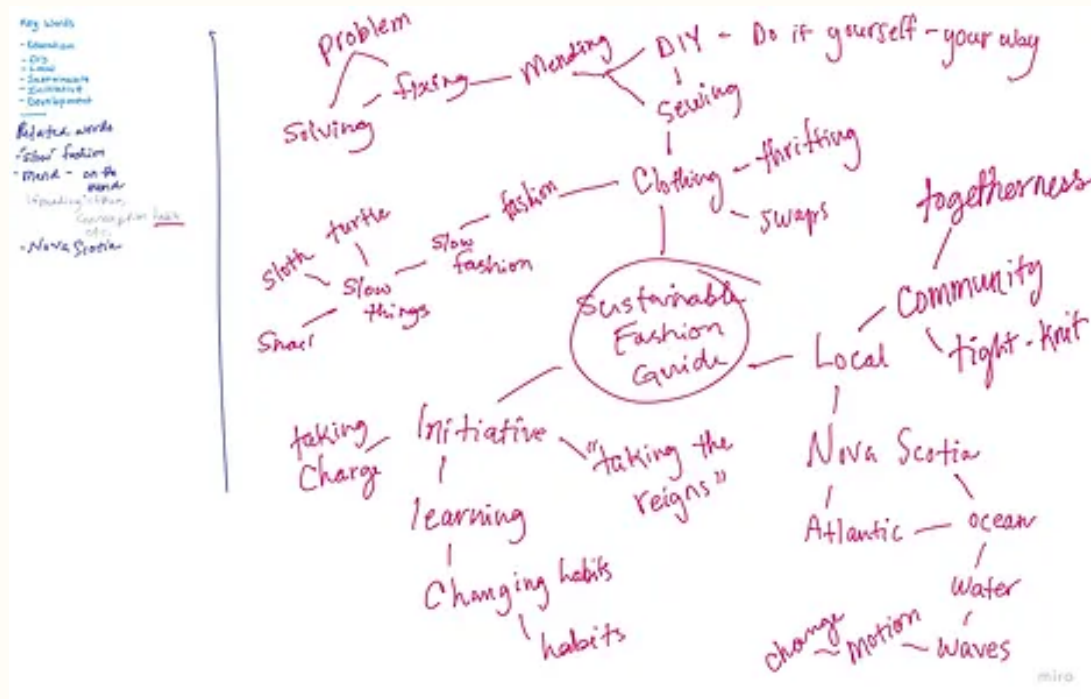 Key Words
- Education
- DIY
- Local
- Sustainable
- Initiative
- Development
Related words
- "Slow" fashion
- Mend - on the
mend
habits
etc.
- Nova Scotia
problem
solving
fixing
Mending
DIY - Do it yourself - your way
Sewing
Clothing
thrifting
swaps
fashion
Slow
fashion
Slow
things
turtle
sloth
Snail
Sustainable
Fashion
Guide
Local
Community
togetherness
tight-knit
Nova Scotia
Atlantic
ocean
water
waves
motion
change
Initiative
taking
Charge
"taking the
reigns"
learning
Changing habits
habits
miro